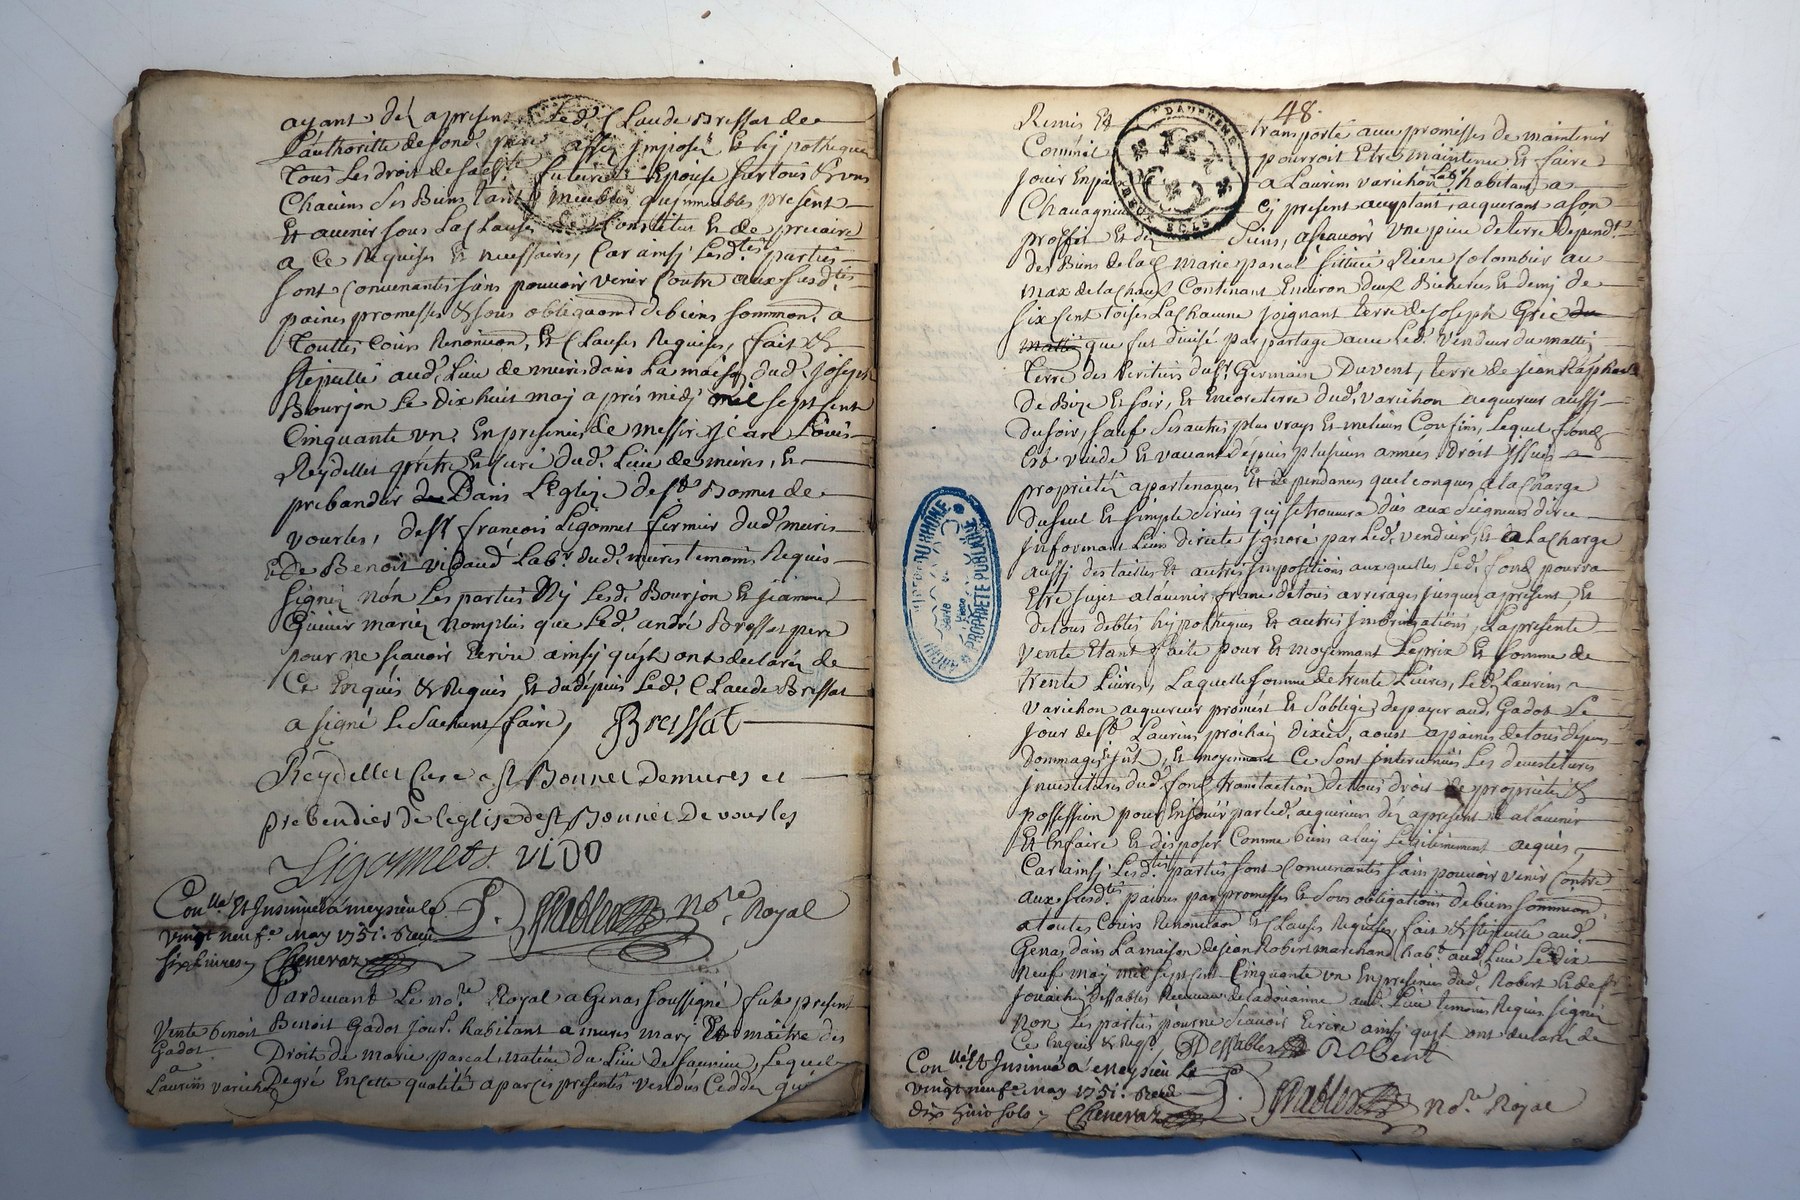 ayant dez apresent Led. Claude Bressat de
L'authorité de sond. pere assis imposé et hj pothequé
Tous Les droit de sad.te future Epouse sur tous & uns
Chacuns ses Biens tant meubles qu'immeubles present
Et avenir sous La Clause de Constitut Et de precaire
a Ce Requises Et necessaires, Car ainsj Lesd.tes parties
sont Convenantes sans pouvoir venir Contre aux susd.tes
paines promesses & sous obligaons de biens sommond. a
Touttes Cours Renonéaon, Et Clauses Requises, fait &
stepullé aud. Lieu de mures dans La maison dud. joseph
Bourjon Le dix huit maj après midj mil sept cent
Cinquante un. En presences de messire jean Louis
Reydellet prêtre Et Curé dud. Lieu de mures, Et
prebandier Dans L'Eglize de St Bonnet de
vourles, de sr françois Ligonnet fermier dud. mures
Et De Benoit vidaud Lab.r dud. mures temoins Requis
signez non Les parties Nj Lesd. Bourjon Et jeanne
mariez Non plus que Led. andré Bressat pere
pour ne sçavoir Ecrire ainsj qu'jls ont declarés de
Ce Enquis & Requis, Et dudepuis Led. Claude Bressat
a signé Le Sachant faire, Bressat
Reydellet Curé a st Bonnet De mures et
prebendier de l'eglise de st Bonnet De vourles
Ligonnet VIDO
Con.llé Et Insinué a meysieu le
vingt neuf.e May 1751. Receu
six Livres Chenevaz
P. Dessables No.re Royal
Pardevant Le no.re Royal a Genas soussigné fut present
Vente benoit Gadot a Laurins varichon
Benoit Gadot jour.r habitant a mures marj Et maître des
Droits de marie pascal, native du Lieu de Lequel
De gré En cette qualité a par ces presentes vendus Cedder quitté
48.
Remis Et transporté avec promesses de maintenir
Comme il pourroit Etre maintenu Et faire
jouir En paix a Laurins varichon Lab.r habitant a
Chavagnieu cj present acceptant, acquerant a son
proffit Et des Siens, asçavoir Une piece de terre Depend.te
des Biens de lad. Marie pascal sittuée Riere Colombier au
max de la Chaux Contenant Environ deux Bicherées Et demj de
six Cent toises La chacune joignant terre de joseph
que fut divisé par partage avec Led. Vendeur du matin
Terre des heritiers du sr. Germain Duvent, terre de jean Raphael
De Bize Et soir, Et Encore terre dud. varichon acquereur aussj
du soir, sauf Ses autres plus vrays Et melieurs Confins, Lequel fond
Est vuide Et vacant depuis plusieurs années Droit yssues
proprietés apartenances Et dependances quelconques a la Charge
du seul Et simple servis quj se trouvera dûs aux seigneurs directs
jnformant Leur directe jgnoré par Led. vendeur, Et a La charge
aussj des tailles Et autres Impositions auxquelles Led. fond pourra
Etre sujet a lavenir franc de tous arrerages jusques apresent, Et
de tous debtes hypotheques Et autres jmbrigations, La presente
vente Etant faite pour Et moyennant Le prix Et somme de
trente Livres, Laquelle somme de trente Livres, Led. Laurins
varichon acquereur promet Et s'oblige de payer aud. Gadot Le
jour de st Laurins prochain dixie. aoust a paines de tous depens
dommages Et jnt., Et moyennant Ce Sont intervenües Les devestitures
jnvestitures dud. fond translaction de tous droit de proprieté &
possession pour En jouir par led. acquereur dez apresent Et a lavenir
Et En faire Et disposer Comme biens a luy Legitimement acquis,
Car ainsj Lesd.tes parties sont Convenantes Sans pouvoir venir Contre
aux susd.tes paines par promesses Et Sous obligations de biens sommiond
a toutes Cours Renonciaon Et Clauses Requises, fait & stipullé aud.
Genas dans La maison de jean Robert marchand hab.t aud. Lieu Le dix
neuf maj mil sept cent Cinquante un En presence dud. Robert Et de sr
jouachin Dessables Receveur de la douanne aud. Lieu temoins Requis signez
non Les parties pour ne Sçavoir Ecrire ainsj qu'jls ont declaré de
Ce Enquis & Requis Dessables RObert
Con.llé Et Insinué a Meysieu Le
vingt neuf.e may 1751. Receu
dix huit sols Chenevaz
P. Dessables No.re Royal
ARCHIVES DU RHÔNE
PROPRIÉTÉ PUBLIQUE
DAUPHINE